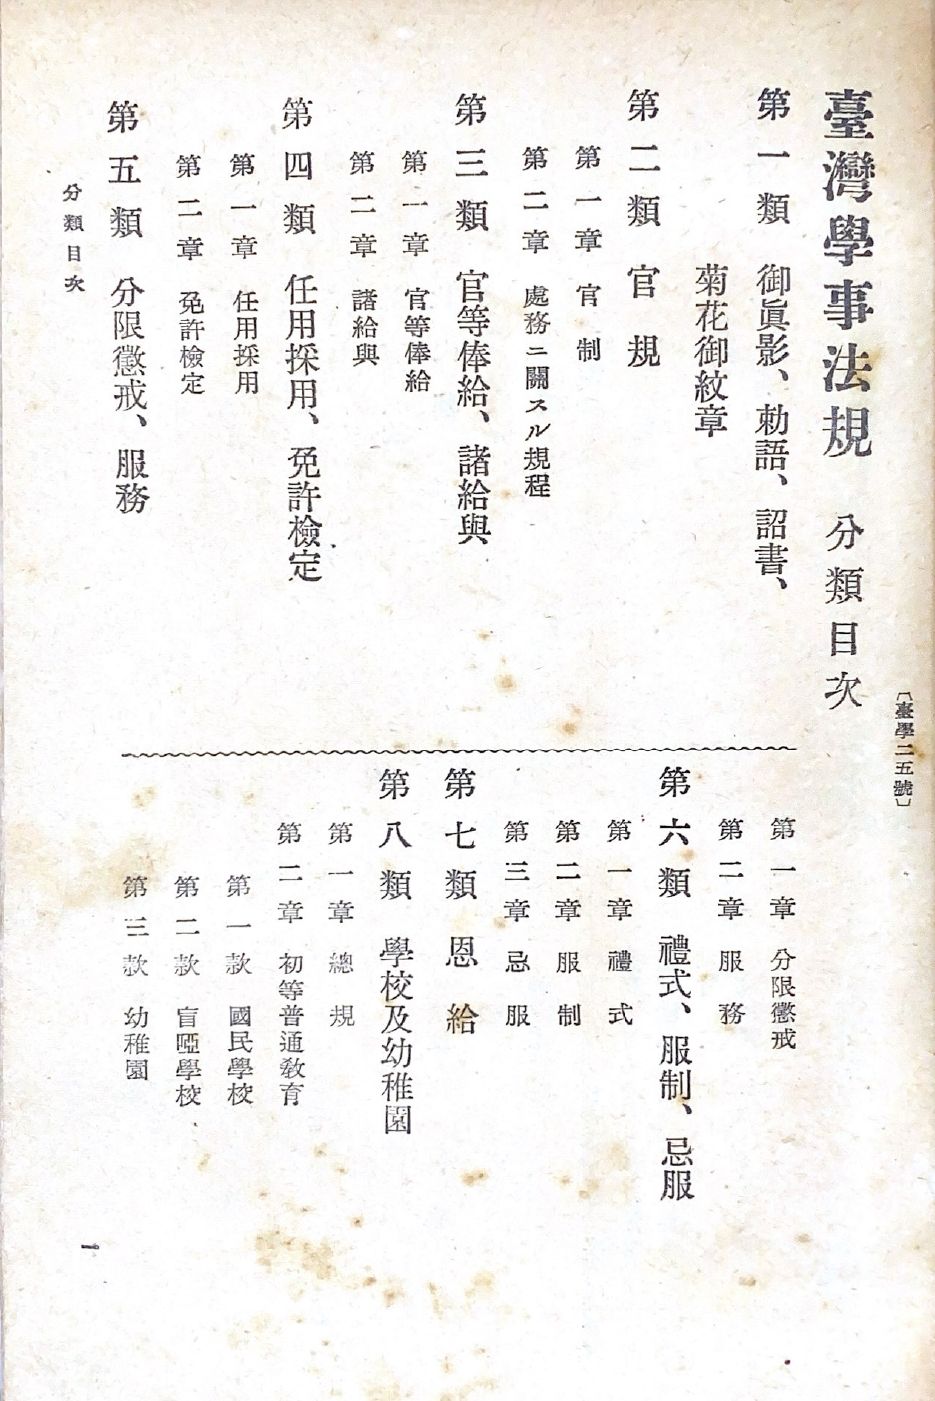 〔臺學二五號〕
臺灣學事法規　分類目次
第一類　御眞影、勅語、詔書、
菊花御紋章
第二類　官規
第一章　官制
第二章　處務ニ關スル規程
第三類　官等俸給、諸給與
第一章　官等俸給
第二章　諸給與
第四類　任用採用、免許檢定
第一章　任用採用
第二章　免許檢定
第五類　分限懲戒、服務
第一章　分限懲戒
第二章　服務
第六類　禮式、服制、忌服
第一章　禮式
第二章　服制
第三章　忌服
第七類　恩給
第八類　學校及幼稚園
第一章　總規
第二章　初等普通敎育
第一款　國民學校
第二款　盲啞學校
第三款　幼稚園
分類目次
一